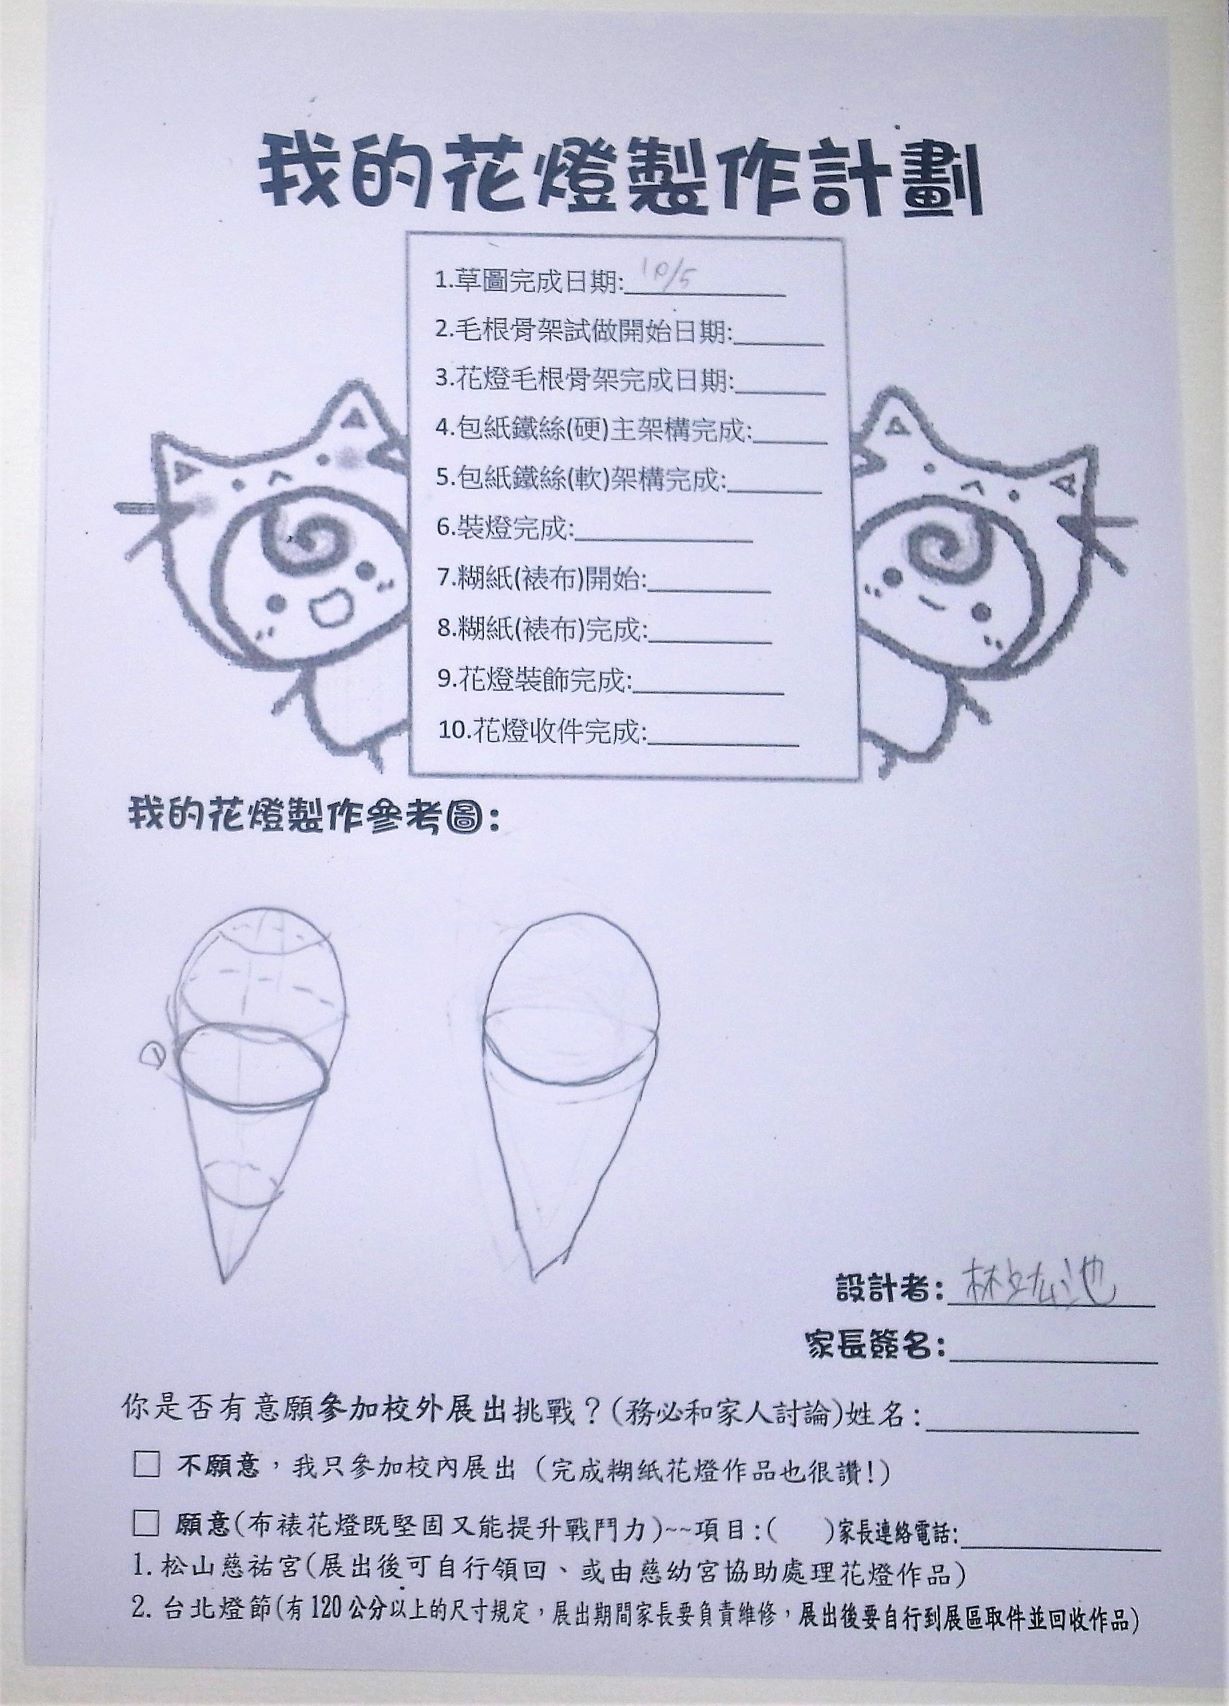 我的花燈製作計劃
1.草圖完成日期:10/5
2.毛根骨架試做開始日期:
3.花燈毛根骨架完成日期:
4.包紙鐵絲(硬)主架構完成:
5.包紙鐵絲(軟)架構完成:
6.裝燈完成:
7.糊紙(裱布)開始:
8.糊紙(裱布)完成:
9.花燈裝飾完成:
10.花燈收件完成:
我的花燈製作參考圖:
設計者:林 池
家長簽名:
你是否有意願參加校外展出挑戰？(務必和家人討論)姓名:
□ 不願意，我只參加校內展出（完成糊紙花燈作品也很讚!）
□ 願意(布裱花燈既堅固又能提升戰鬥力)~~項目:(　　)家長連絡電話:
1. 松山慈祐宮(展出後可自行領回、或由慈幼宮協助處理花燈作品)
2. 台北燈節(有120公分以上的尺寸規定，展出期間家長要負責維修，展出後要自行到展區取件並回收作品)